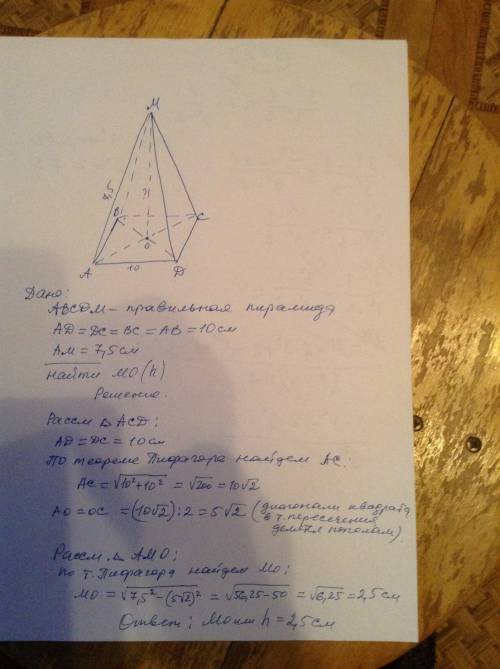 M
7,5
?
B
C
O
A
10
D
Дано:
ABCDM – правильная пирамида
AD = DC = BC = AB = 10 см
AM = 7,5 см
найти MO (h)
Решение.
Рассм △ ACD:
AD = DC = 10 см
По теореме Пифагора найдем AC:
AC = √10² + 10² = √200 = 10√2
AO = OC = (10√2) : 2 = 5√2 (диагонали квадрата
в т. пересечения
делятся пополам).
Рассм. △ AMO:
по т. Пифагора найдем MO:
MO = √7,5² – (5√2)² = √56,25 – 50 = √6,25 = 2,5 см
Ответ: MO или h = 2,5 см